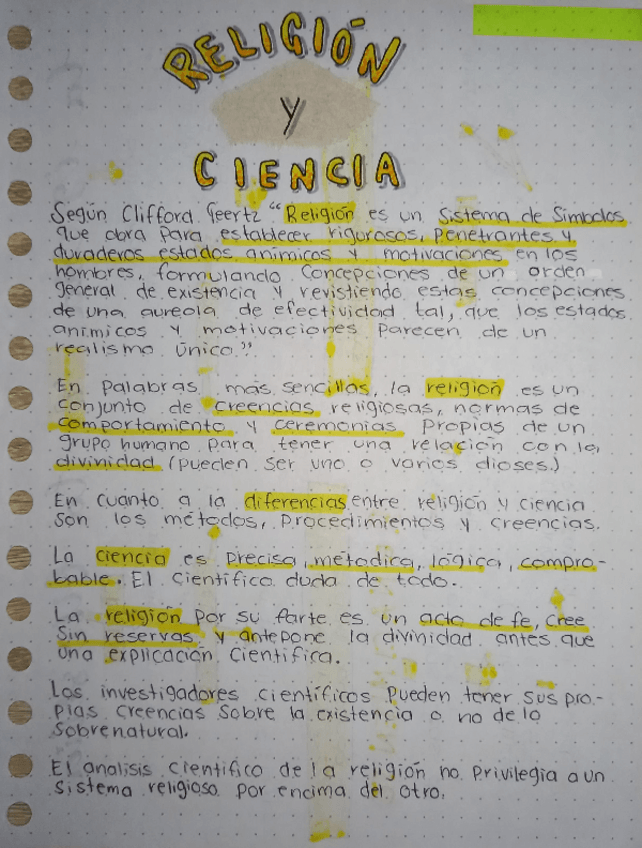 RELIGIÓN
y
CIENCIA
Según Clifford Geertz "Religión es un Sistema de Simbolos
que obra para establecer rigurosos, penetrantes y
duraderos estados anímicos y motivaciones en los
hombres, formulando concepciones de un orden
general de existencia y revistiendo estas concepciones
de una aureola de efectividad tal, que los estados
anímicos y motivaciones parecen de un
realismo único."
En palabras más sencillas, la religión es un
conjunto de creencias religiosas, normas de
comportamiento y ceremonias propias de un
grupo humano para tener una relación con la
divinidad (pueden ser uno o varios dioses.)
En cuanto a la diferencias entre religión y ciencia
son los métodos, procedimientos y creencias.
La ciencia es precisa, metodica, lógica, compro-
bable. El científico duda de todo.
La religión por su parte es un acto de fe, cree
sin reservas y antepone la divinidad antes que
una explicación científica.
Los investigadores científicos pueden tener sus pro-
pias creencias sobre la existencia o no de lo
sobrenatural.
El analisis científico de la religión no privilegia a un
sistema religioso por encima del otro.